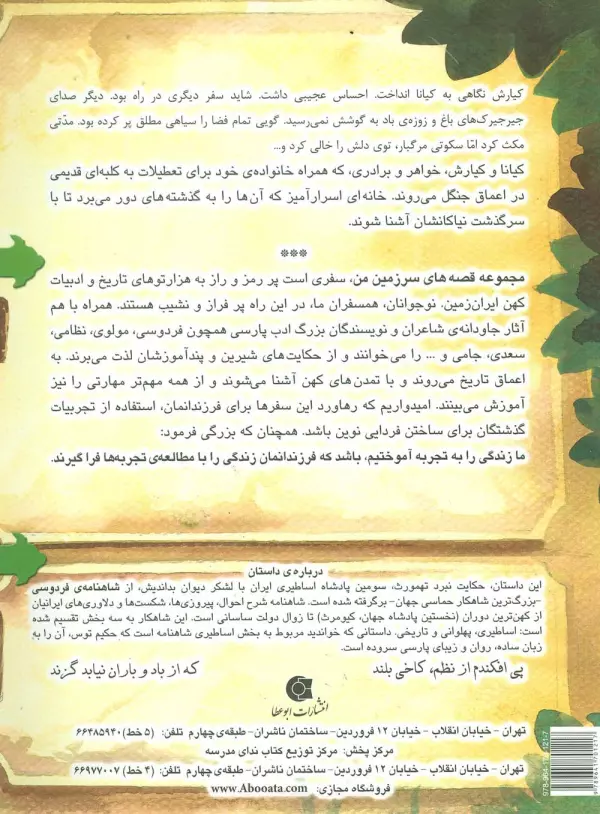 کیارش نگاهی به کیانا انداخت. احساس عجیبی داشت. شاید سفر دیگری در راه بود. دیگر صدای
جیرجیرک‌های باغ و زوزه‌ی باد به گوشش نمی‌رسید. گویی تمام فضا را سیاهی مطلق پر کرده بود. مدّتی
مکث کرد امّا سکوتی مرگبار، توی دلش را خالی کرد و...
کیانا و کیارش، خواهر و برادری، که همراه خانواده‌ی خود برای تعطیلات به کلبه‌ای قدیمی
در اعماق جنگل می‌روند. خانه‌ای اسرارآمیز که آن‌ها را به گذشته‌های دور می‌برد تا با
سرگذشت نیاکانشان آشنا شوند.
***
مجموعه قصه‌های سرزمین من، سفری است پر رمز و راز به هزارتوهای تاریخ و ادبیات
کهن ایران‌زمین. نوجوانان، همسفران ما، در این راه پر فراز و نشیب هستند. همراه با هم
آثار جاودانه‌ی شاعران و نویسندگان بزرگ ادب پارسی همچون فردوسی، مولوی، نظامی،
سعدی، جامی و ... را می‌خوانند و از حکایت‌های شیرین و پندآموزشان لذت می‌برند. به
اعماق تاریخ می‌روند و با تمدن‌های کهن آشنا می‌شوند و از همه مهم‌تر مهارتی را نیز
آموزش می‌بینند. امیدواریم که رهاورد این سفرها برای فرزندانمان، استفاده از تجربیات
گذشتگان برای ساختن فردایی نوین باشد. همچنان که بزرگی فرمود:
ما زندگی را به تجربه آموختیم، باشد که فرزندانمان زندگی را با مطالعه‌ی تجربه‌ها فرا گیرند.
درباره‌ی داستان
این داستان، حکایت نبرد تهمورث، سومین پادشاه اساطیری ایران با لشکر دیوان بداندیش، از شاهنامه‌ی فردوسی
-بزرگ‌ترین شاهکار حماسی جهان- برگرفته شده است. شاهنامه شرح احوال، پیروزی‌ها، شکست‌ها و دلاوری‌های ایرانیان
از کهن‌ترین دوران (نخستین پادشاه جهان، کیومرث) تا زوال دولت ساسانی است. این شاهکار به سه بخش تقسیم شده
است: اساطیری، پهلوانی و تاریخی. داستانی که خواندید مربوط به بخش اساطیری شاهنامه است که حکیم توس، آن را به
زبان ساده، روان و زیبای پارسی سروده است.
پی افکندم از نظم، کاخی بلند که از باد و باران نیابد گزند
انتشارات ابوعطا
تهران - خیابان انقلاب - خیابان ۱۲ فروردین- ساختمان ناشران- طبقه‌ی چهارم تلفن: (۵ خط) ۶۶۴۸۵۹۴۰
مرکز پخش: مرکز توزیع کتاب ندای مدرسه
تهران - خیابان انقلاب - خیابان ۱۲ فروردین- ساختمان ناشران- طبقه‌ی چهارم تلفن: (۴ خط) ۶۶۹۷۷۰۰۷
فروشگاه مجازی: www.Abooata.com